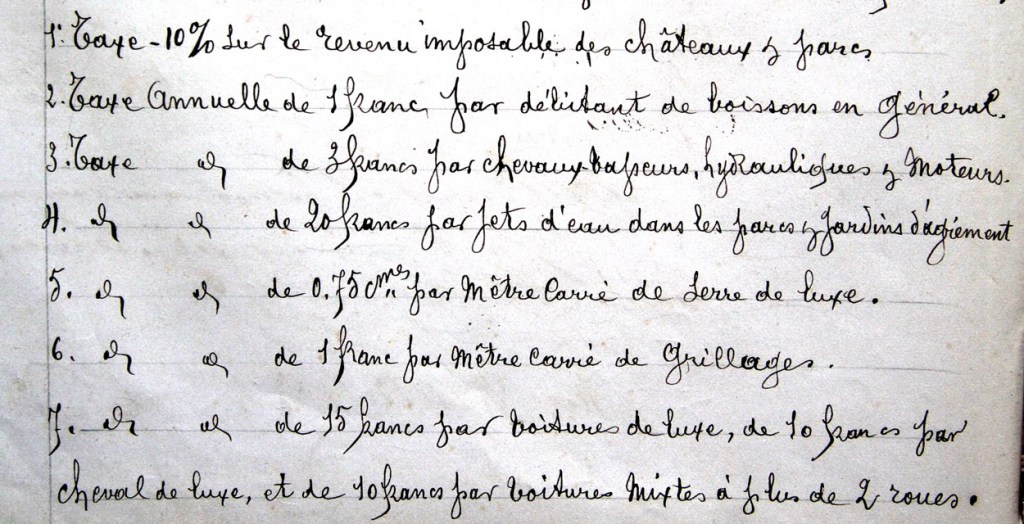 1. Taxe - 10% sur le revenu imposable des châteaux & parcs
2. Taxe Annuelle de 1 franc, par débitant de boissons en général.
3. Taxe d° de 3 francs par chevaux-vapeurs, hydrauliques & Moteurs.
4. d° d° de 20 francs par jets d'eau dans les parcs & jardins d'agrément
5. d° d° de 0.75 cmes par Mêtre Carré de Serre de luxe.
6. d° d° de 1 franc par Mêtre Carré de Grillages.
7. d° d° de 15 francs par voitures de luxe, de 10 francs par
cheval de luxe, et de 10 francs par voitures Mixtes à plus de 2 roues.